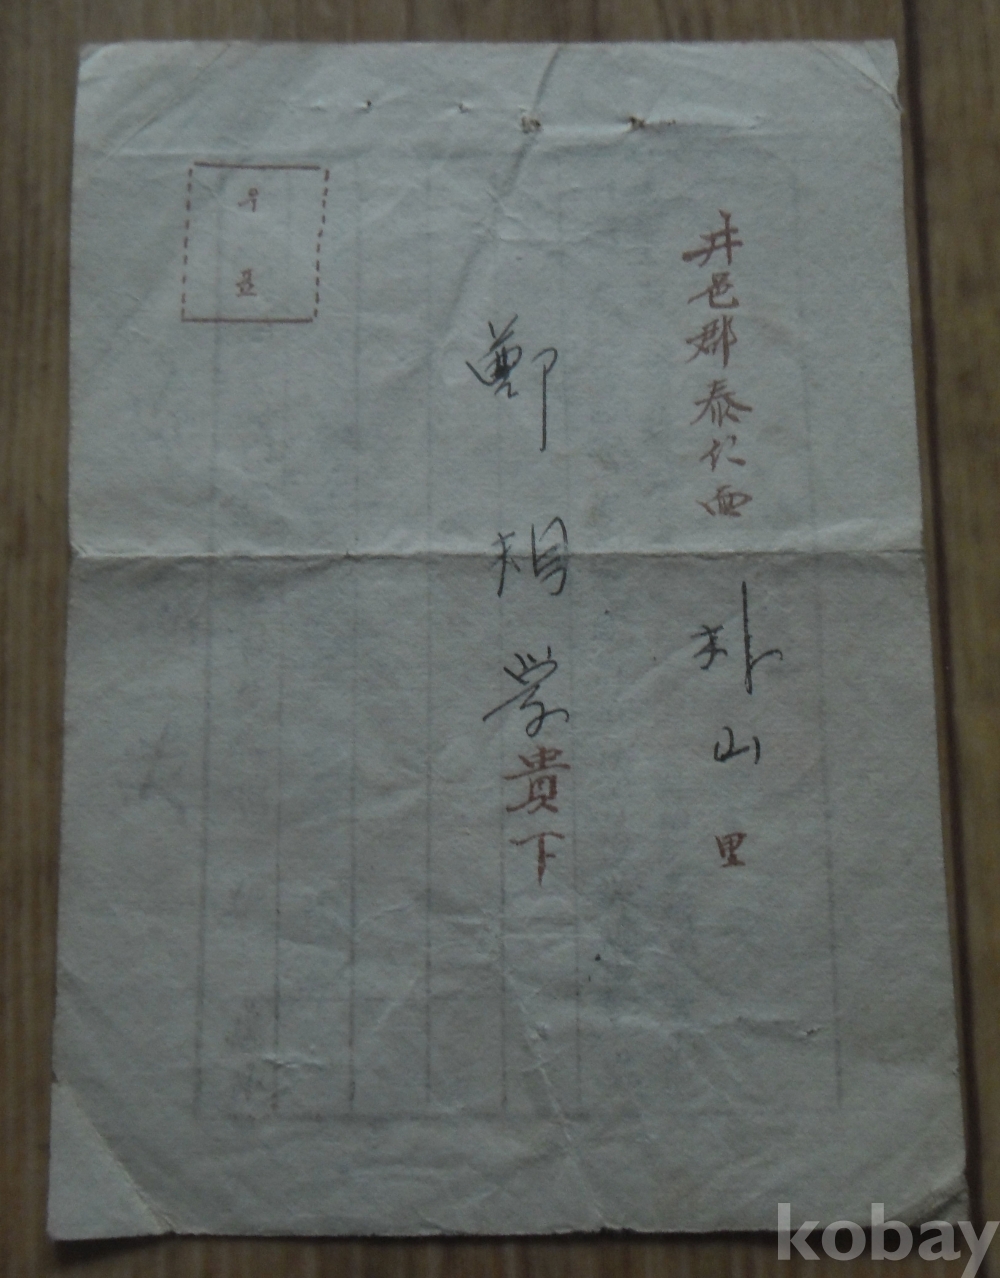 井邑郡泰仁面 朴山里
鄭相学貴下
우표
kobay